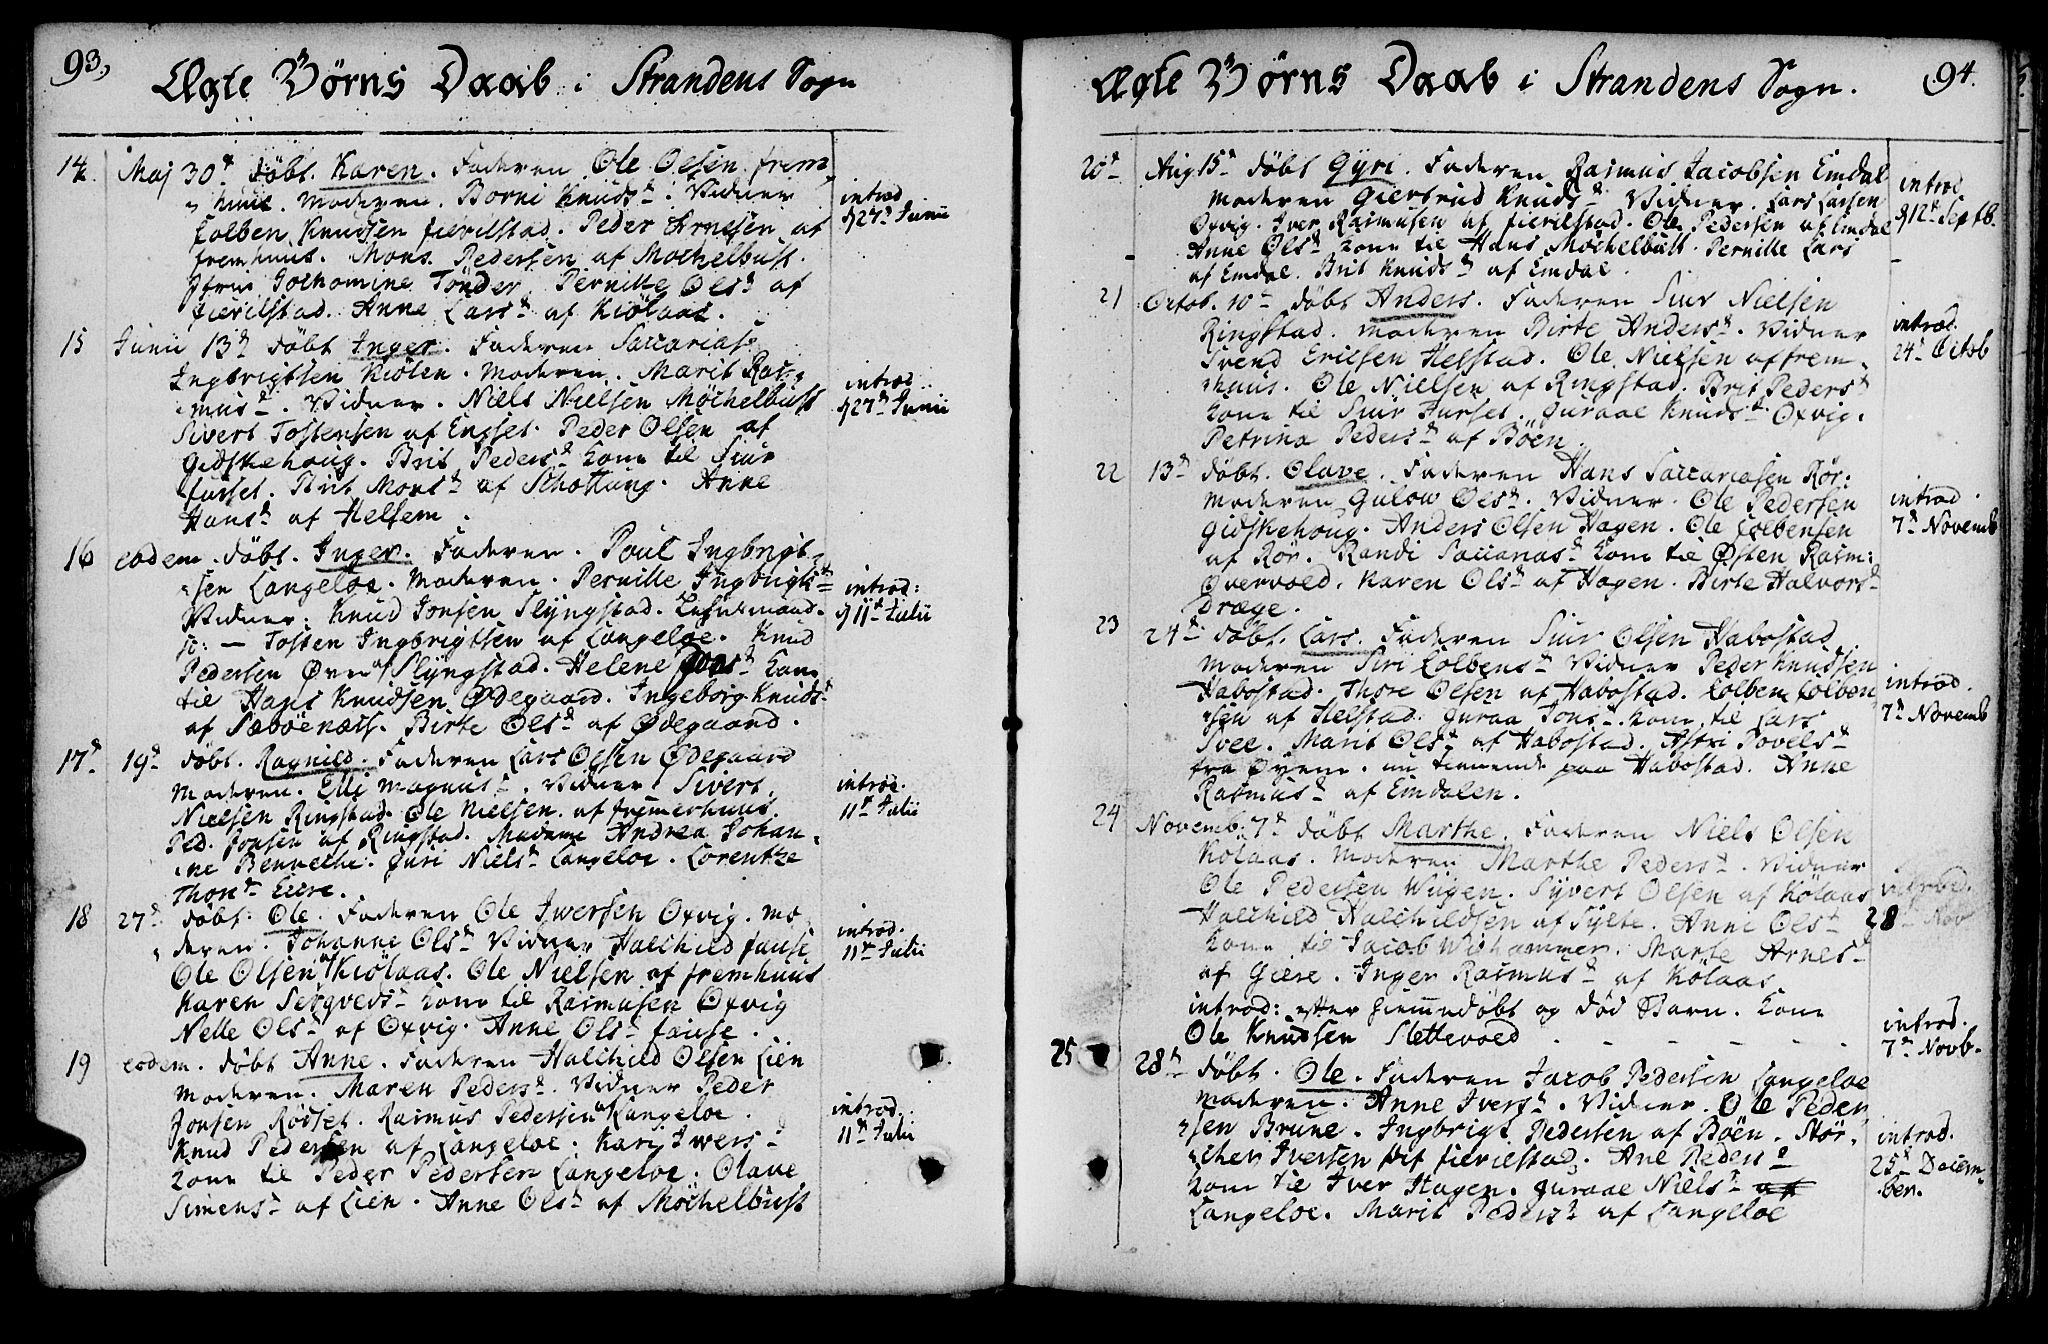 93.
Ægte Börns Daab i Strandens Sogn
14. Maj 30te döbt. Karen. Faderen Ole Olsen frem-
huus. Moderen. Borni Knudsd. Vidner
Colben Knudsen fierilstad. Peder Arnesen af
fremhuus. Mons Pedersen af Mochelbust.
Jfru Jochomine Tönder. Pernille Olsd af
fierilstad. Anne Larsd af Kiölaas.
introd
d 27d Junii
15 Junii 13d döbt Inger. Faderen Saccarias
Ingbrigtsen Kiölen. Moderen. Marit Ras-
musd. Vidner. Niels Nielsen Möchelbust
Sivert Tostensen af Engset. Peder Olsen af
Gidskehoug. Brit Pedersd kone til Siur
furset. Brit Monsd af Schottung. Anne
Hansd af Helsem.
introd
d 27d Junii
16 eodem. döbt. Inger. Faderen. Poul Ingbrigt-
sen Langeloe. Moderen. Pernille Ingbrigtsd
Vidner: Knud Jonsen Slyngstad. Lensmand.
sc: — Tosten Ingbrigtsen af Langeloe. Knud
Pedersen Övre af Slyngstad. Helene kone
til Hans Knudsen Ødegaard. Ingeborg Knudsd
af Sæböenæss. Birte Olsd af Ødegaard.
introd:
d 11d Julii
17d 19d döbt. Ragnild. Faderen Lars Olsen Ødegaard
Moderen. Elli Magnusd. Vidner Sivert
Nielsen Ringstad. Ole Nielsen af fremerhuus.
Ped. Jonsen af Ringstad. Madame Andrea Johan-
ne Benveche. Guri Nielsd Langeloe. Lorentze
Thond Eiere.
introd.
11d Julii
18 27d döbt: Ole. Faderen Ole Iwersen Oxvig. Mo-
deren. Johanne Olsd Vidner Halchild fause
Ole Olsen af Kiölaas. Ole Nielsen af fremhuus
Karen Sergvedsd kone til Rasmusen Oxvig
Nelle Olsd af Oxvig. Anne Olsd fause.
introd.
11d Julii
19 eodem. döbt Anne. Faderen Halchild Olsen Lien
Moderen. Maren Pedersd. Vidner Peder
Jonsen Rödset. Rasmus Pedersen af Langeloe.
Knud Pedersen af Langeloe. Kari Iwersd
kone til Peder Pedersen Langeloe. Olave
Simensd af Lien. Anne Olsd af Möchelbust
introd.
11d Julii
Ægte Börns Daab i Strandens Sogn.
94.
20d Aug 15d döbt Gyri. Faderen Rasmus Jacobsen Emdal
Moderen Giertrud Knudsd. Vidner. Lars Larsen
Oxvig. Iver Rasmusen af fierilstad. Ole Pedersen af Emdal
Anne Olsd kone til Hans Mochelbust. Pernille Lars
af Emdal. Brit Knudsd af Emdal.
introd
d 12d Septb.
21 Octob. 10d döbt Anders. Faderen Siur Nielsen
Ringstad. Moderen Birte Andersd. Vidner
Svend Ericsen Helstad. Ole Nielsen af frem-
huus. Ole Nielsen af Ringstad. Brit Pedersd
kone til Siur furset. Guraae Knudsd Oxvig.
Petrina Pedersd af Böen.
introd.
24d Octob
22 13d döbt. Olave. Faderen Hans Saccariasen Rör:
Moderen Gulow Olsd. Vidner. Ole Pedersen
Gidskehoug. Anders Olsen Hagen. Ole Colbensen
af Rör. Randi Saccariasd kone til Östen Rasm:
Overvold. Karen Olsd af Hagen. Birte Halvorsd
Dræge.
introd.
7d Novemb
23 24d döbt. Lars. Faderen Siur Olsen Habostad
Moderen Siri Colbensd Vidner Peder Knudsen
Habostad. Thore Olsen af Habostad. Colben Colben-
sen af Helstad. Guraa Jonsd kone til Lars
Svee. Marit Olsd af Habostad. Astri Povelsd
fra Öyene. nu tienende paa Habostad. Anne
Rasmusd af Emdalen.
introd.
7d Novemb
24 Novemb: 7d döbt Marthe. Faderen Niels Olsen
Kölaas. Moderen Marthe Pedersd. Vidner
Ole Pedersen Wiigen. Syvert Olsen af Kölaas
Halchild Halchildsen af Sylte. Anne Olsd
kone til Jacob Wichammer. Marte Arnesd
af Giere. Inger Rasmusd af Kölaas
introd.
28d Nov
introd: efter hiemmedöbt og död Barn. kone
Ole Knudsen Slettevold
introd.
7d Novb.
25 28d döbt. Ole. Faderen Jacob Pedersen Langeloe
Moderen. Anne Iversd. Vidner. Ole Peder-
sen Brune. Ingbrigt Pedersen af Böen. Stör-
cher Iversen fierilstad. Ane Pedersd
kone til Iver Hagen. Guraae Nielsd
Langeloe. Marit Pedersd af Langeloe
introd.
25d Decem-
ber.